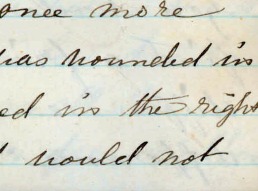 once more
was wounded in
ed in the right
would not